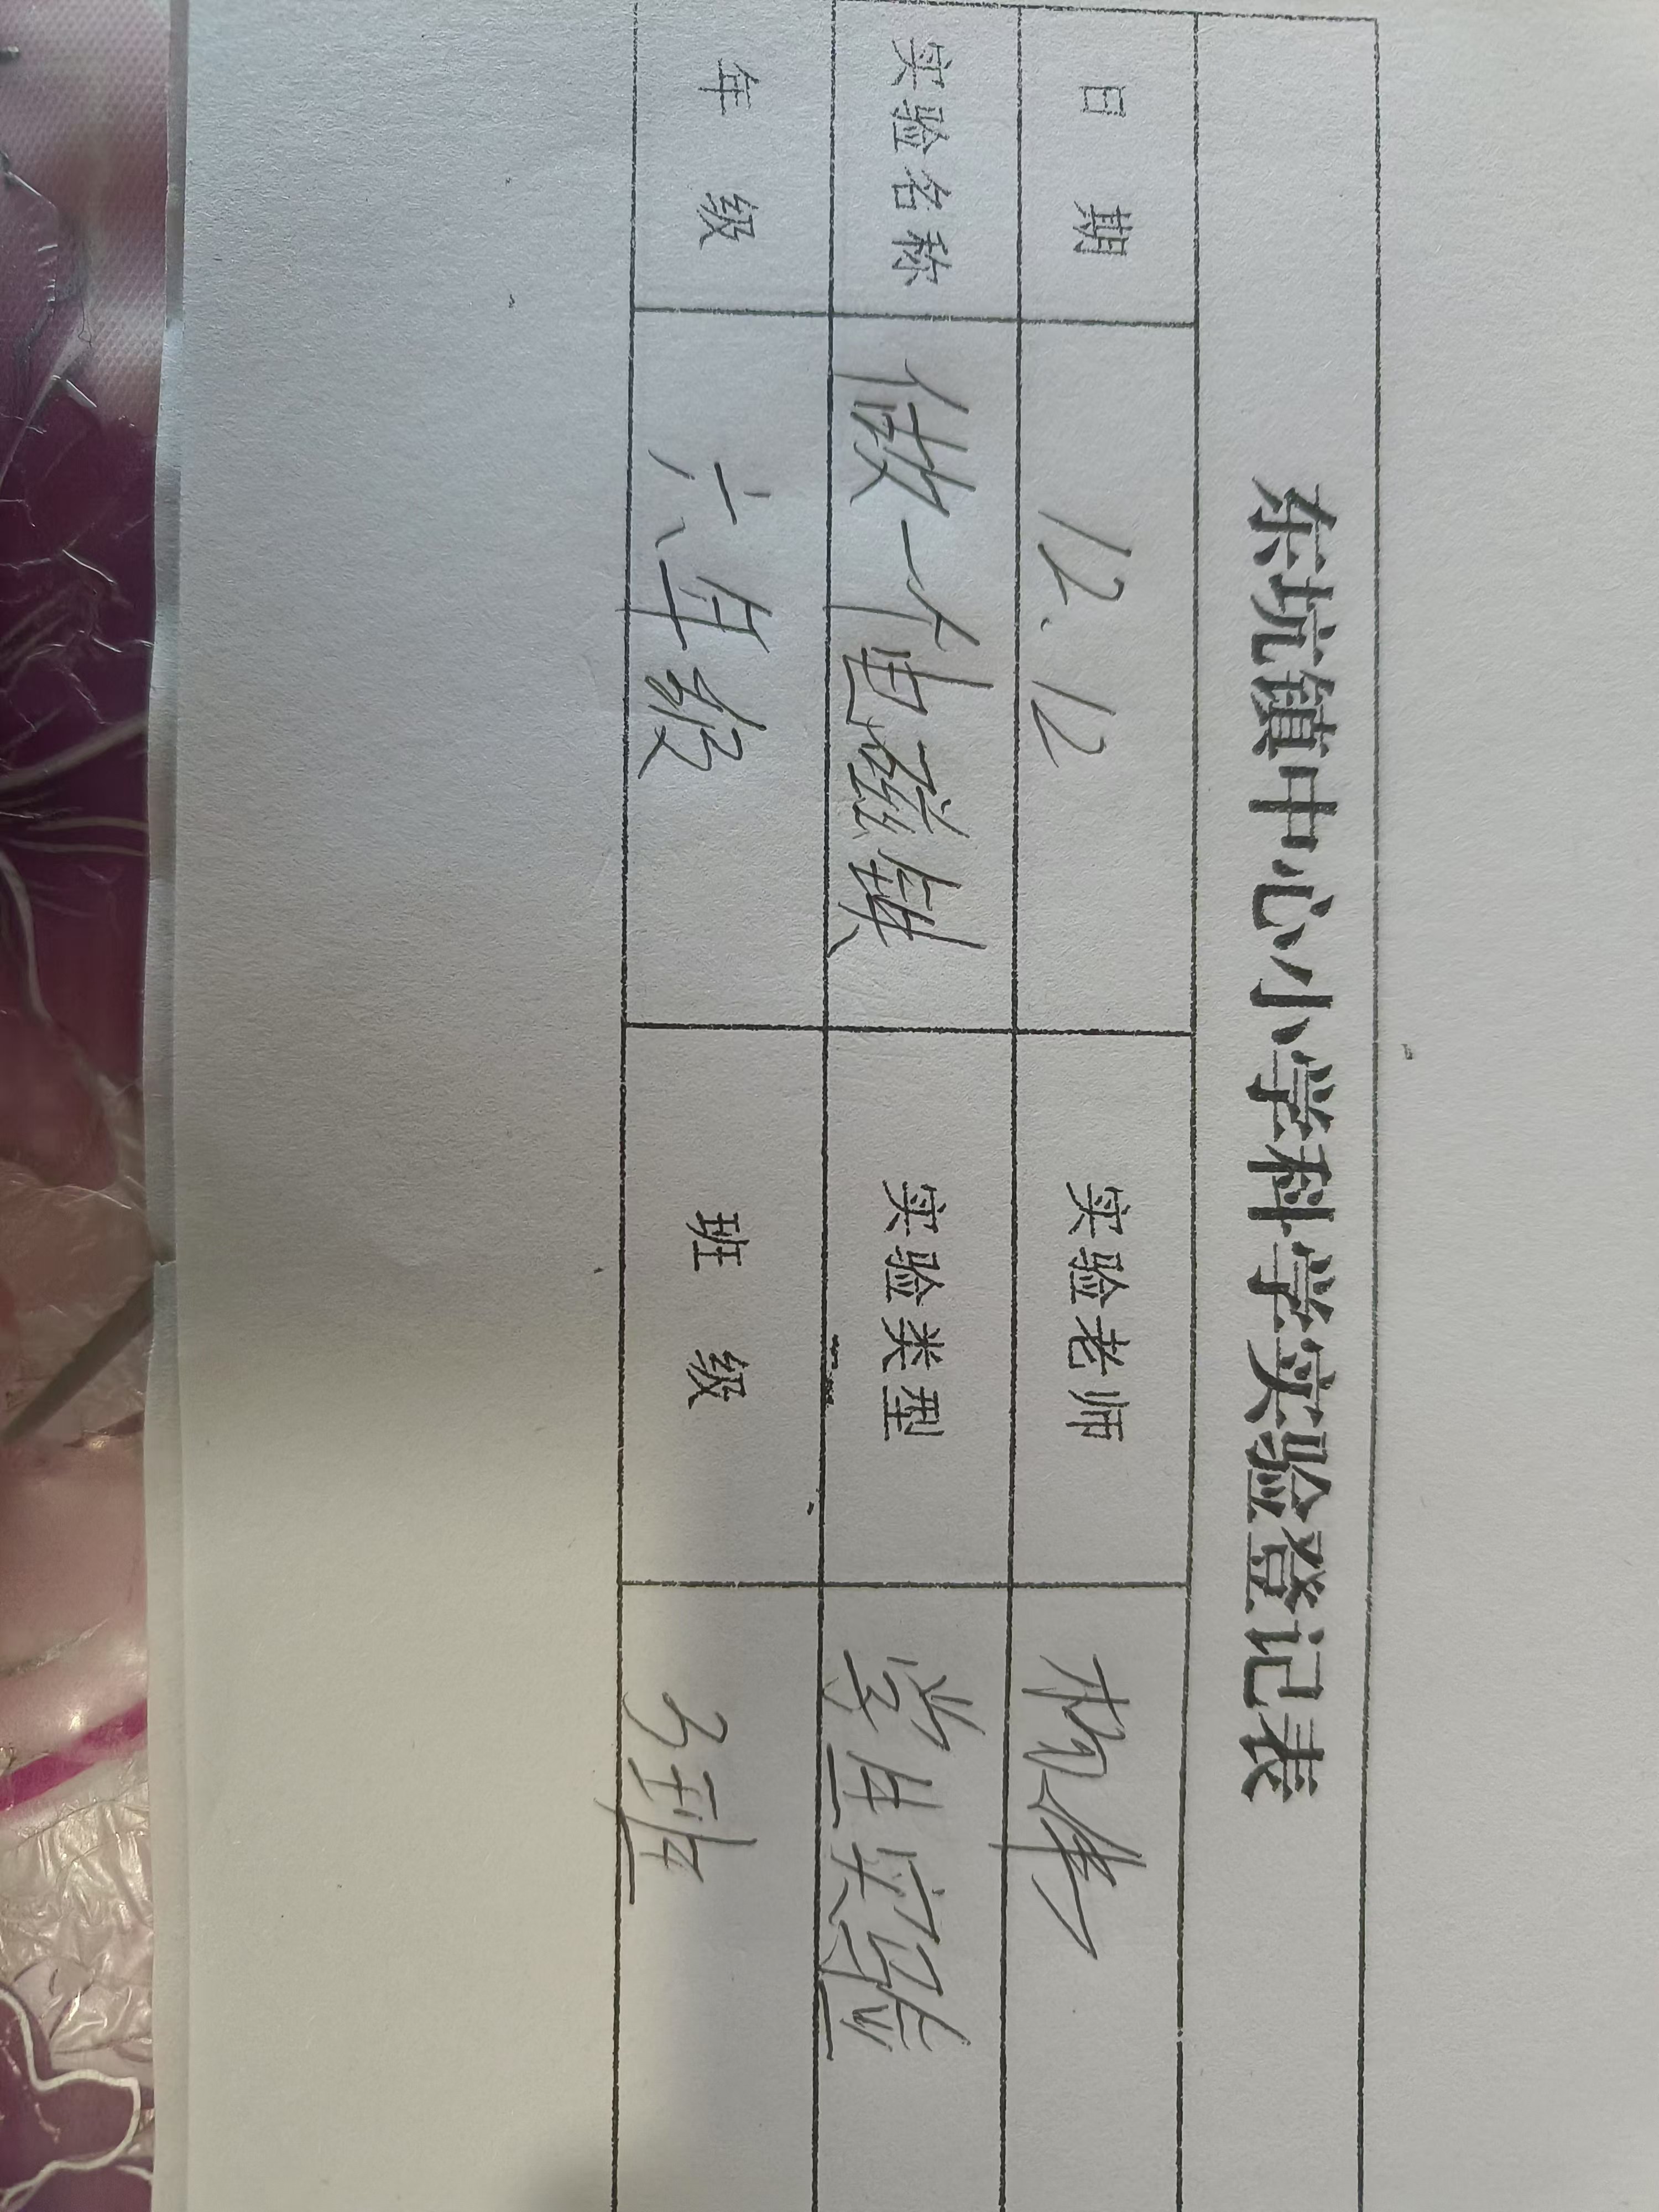 东坑镇中心小学科学实验登记表
日 期 12.12 实验老师
实验名称 做一个电磁铁 实验类型 学生实验
年 级 六年级 班 级 3班